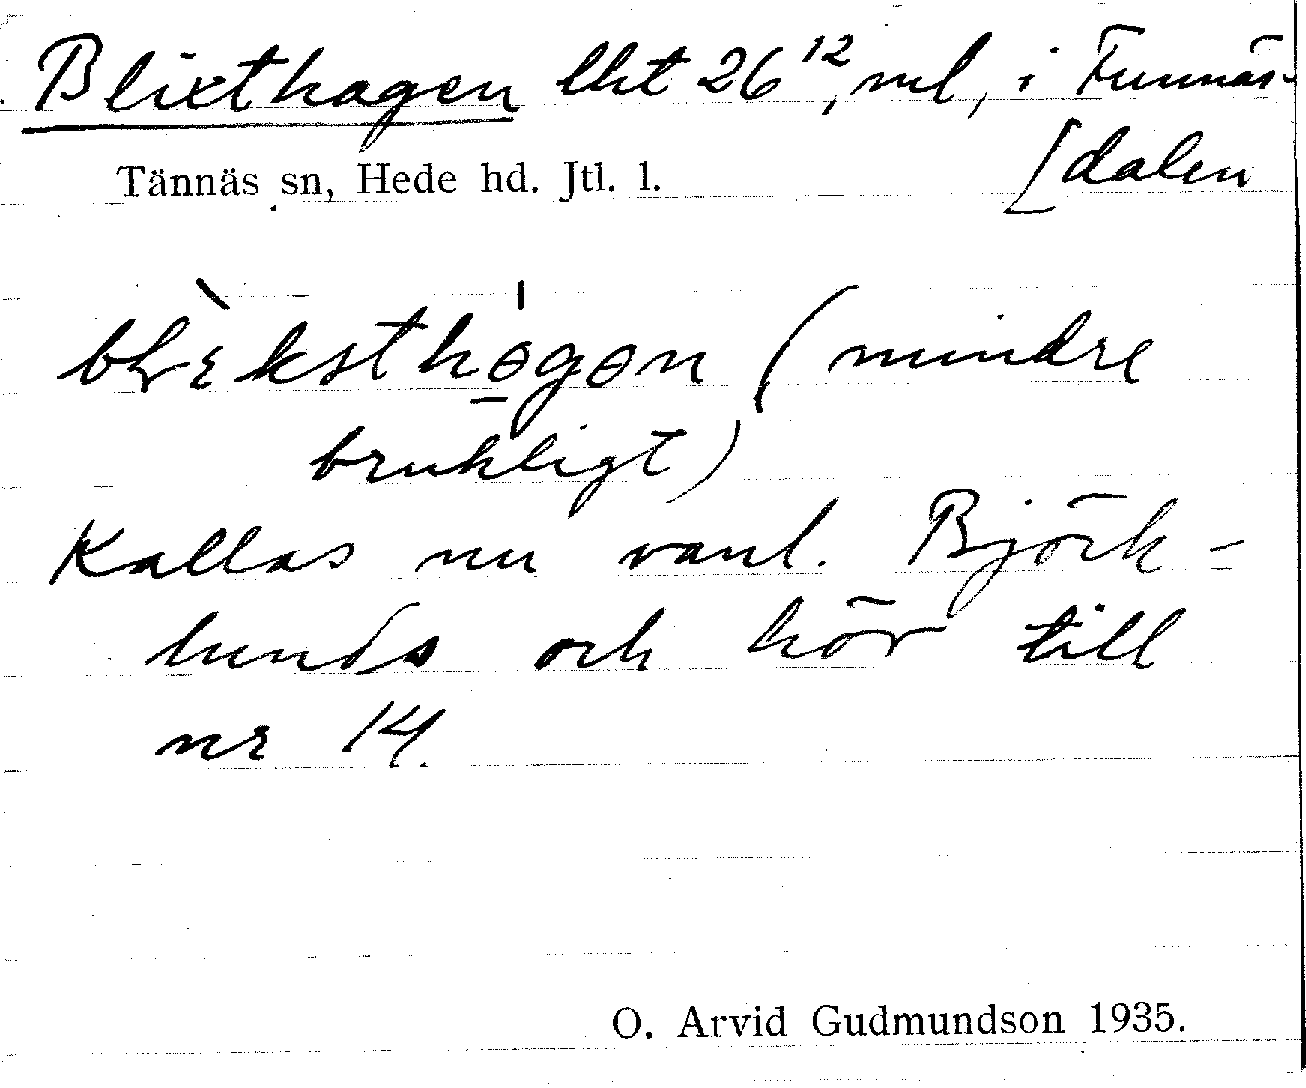 Blixthagen lht 26¹², ml, i Funnäs-
[dalen
Tännäs sn, Hede hd. Jtl. l.
(mindre
brukligt)
Kallas nu vanl. Björk-
lunds och hör till
nr 14.
O. Arvid Gudmundson 1935.